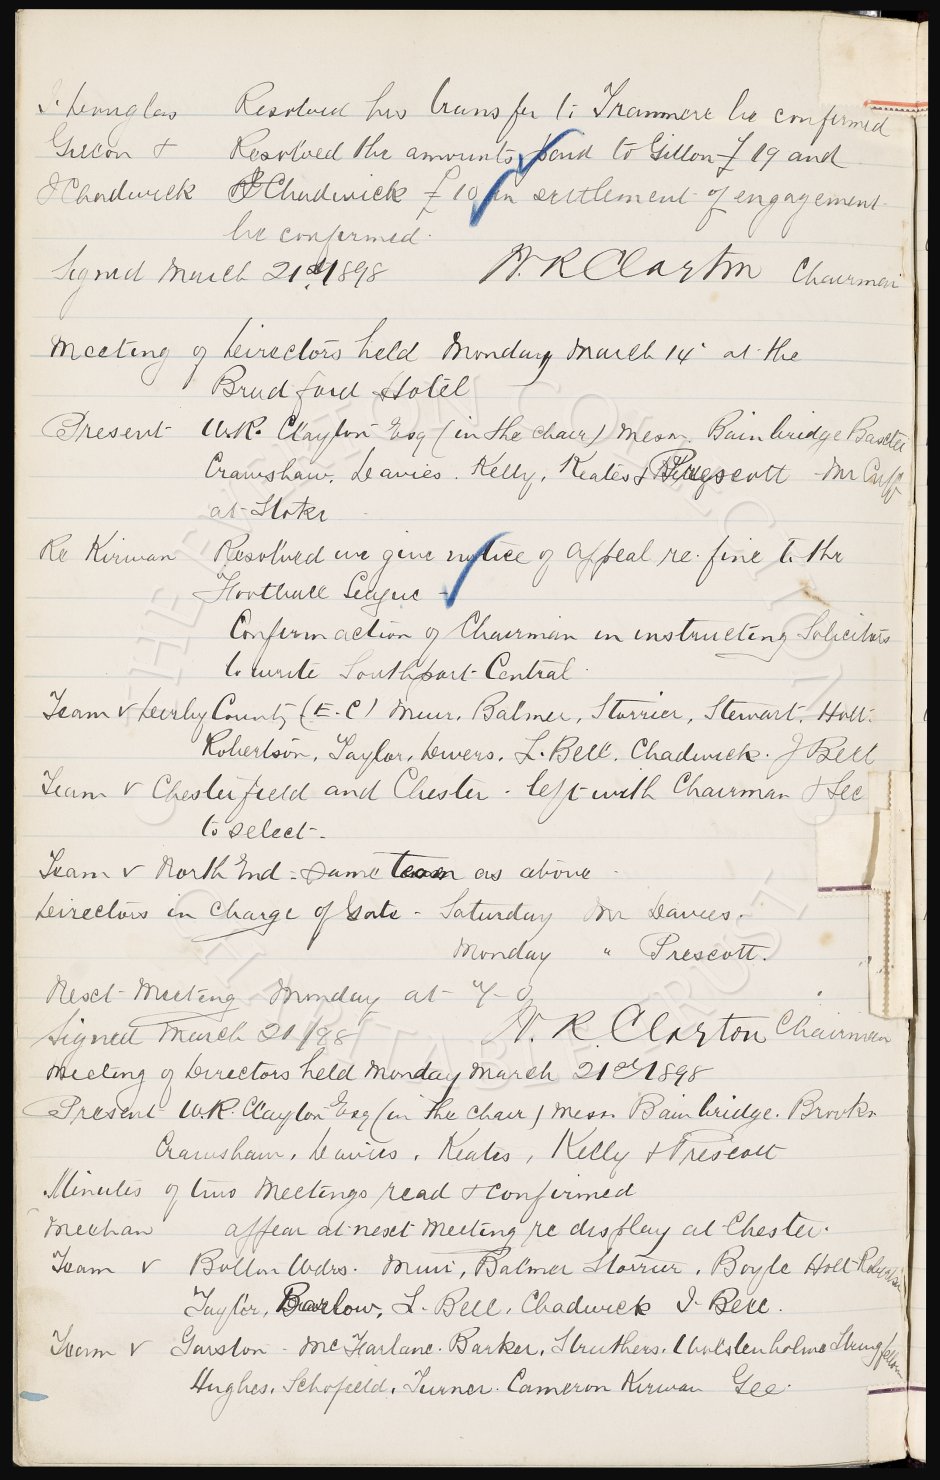 J. Douglas Resolved his transfer to Tranmere be confirmed
Gillon & Resolved the amounts paid to Gillon £19 and
J Chadwick J Chadwick £10 in settlement of engagement
be confirmed.
Signed March 21st 1898 W. R Clayton Chairman
Meeting of Directors held Monday March 14 at the
Bradford Hotel
Present W.R. Clayton Esq (in the chair) Messrs. Bainbridge Baxter
Crawshaw, Davies. Kelly, Keates & Prescott - Mr Cuff
at Stoke
Re Kirwan Resolved we give notice of appeal re. fine to the
Football League -
Confirm action of Chairman in instructing Solicitors
to write Southport Central
Team v Derby County (E.C) Muir, Balmer, Storrier, Stewart, Holt.
Robertson, Taylor, Divers, L. Bell, Chadwick. J Bell
Team v Chesterfield and Chester - left with Chairman & Sec
to select-
Team v North End = same team as above -
Directors in charge of Gate - Saturday Mr Davies.
Monday " Prescott.
Next Meeting Monday at 7-0
Signed March 21/98 W. R. Clayton Chairman
Meeting of Directors held Monday March 21st 1898
Present W.R. Clayton Esq (in the chair) Messrs Bainbridge. Brooks
Crawshaw, Davies, Keates, Kelly & Prescott
Minutes of two Meetings read & confirmed
Meehan appear at next Meeting re display at Chester.
Team v Bolton Wdrs. Muir, Balmer Storrier, Boyle Holt Robertson
Taylor, Barlow, L. Bell, Chadwick J. Bell.
Team v Garston - McFarlane. Barker, Struthers. Wolstenholme Stringfellow
Hughes, Schofield, Turner. Cameron Kirwan Gee.
THE EVERTON COLLECTION
CHARITABLE TRUST